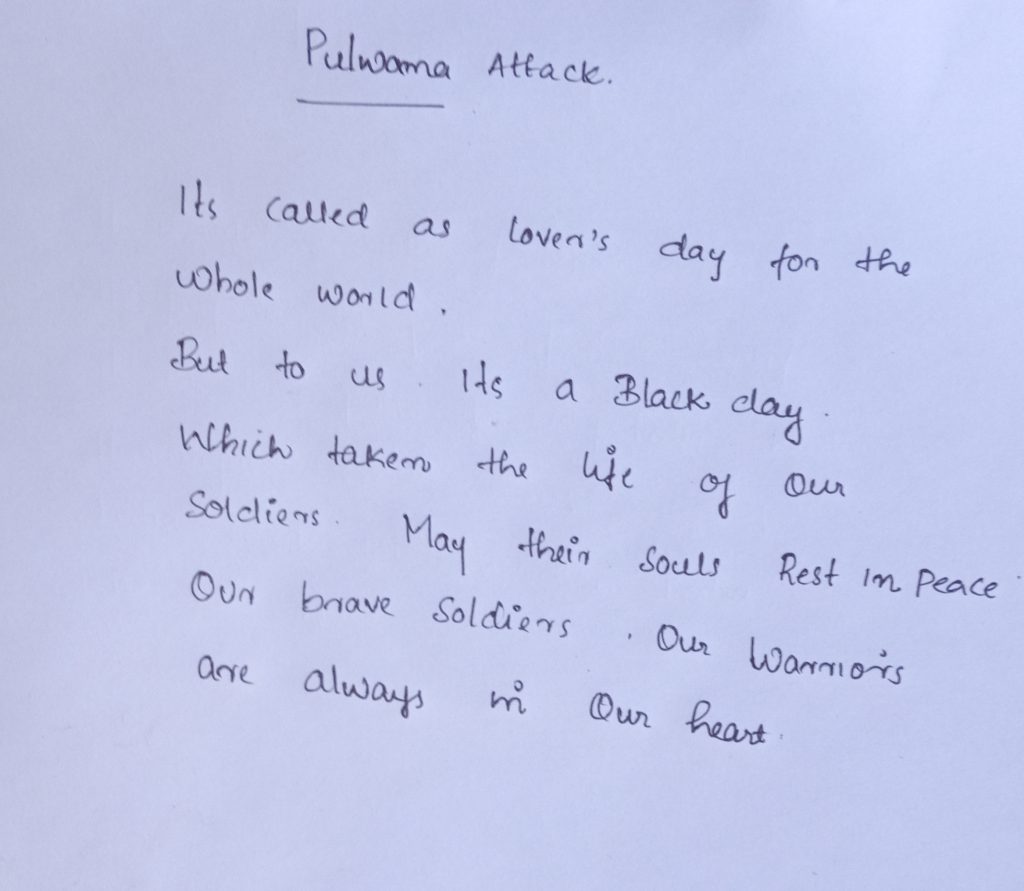 Pulwama Attack.
Its called as lover's day for the
whole world.
But to us. Its a Black day.
Which taken the life of our
Soldiers. May their souls Rest in Peace.
Our brave Soldiers. Our Warriors
are always in Our heart.